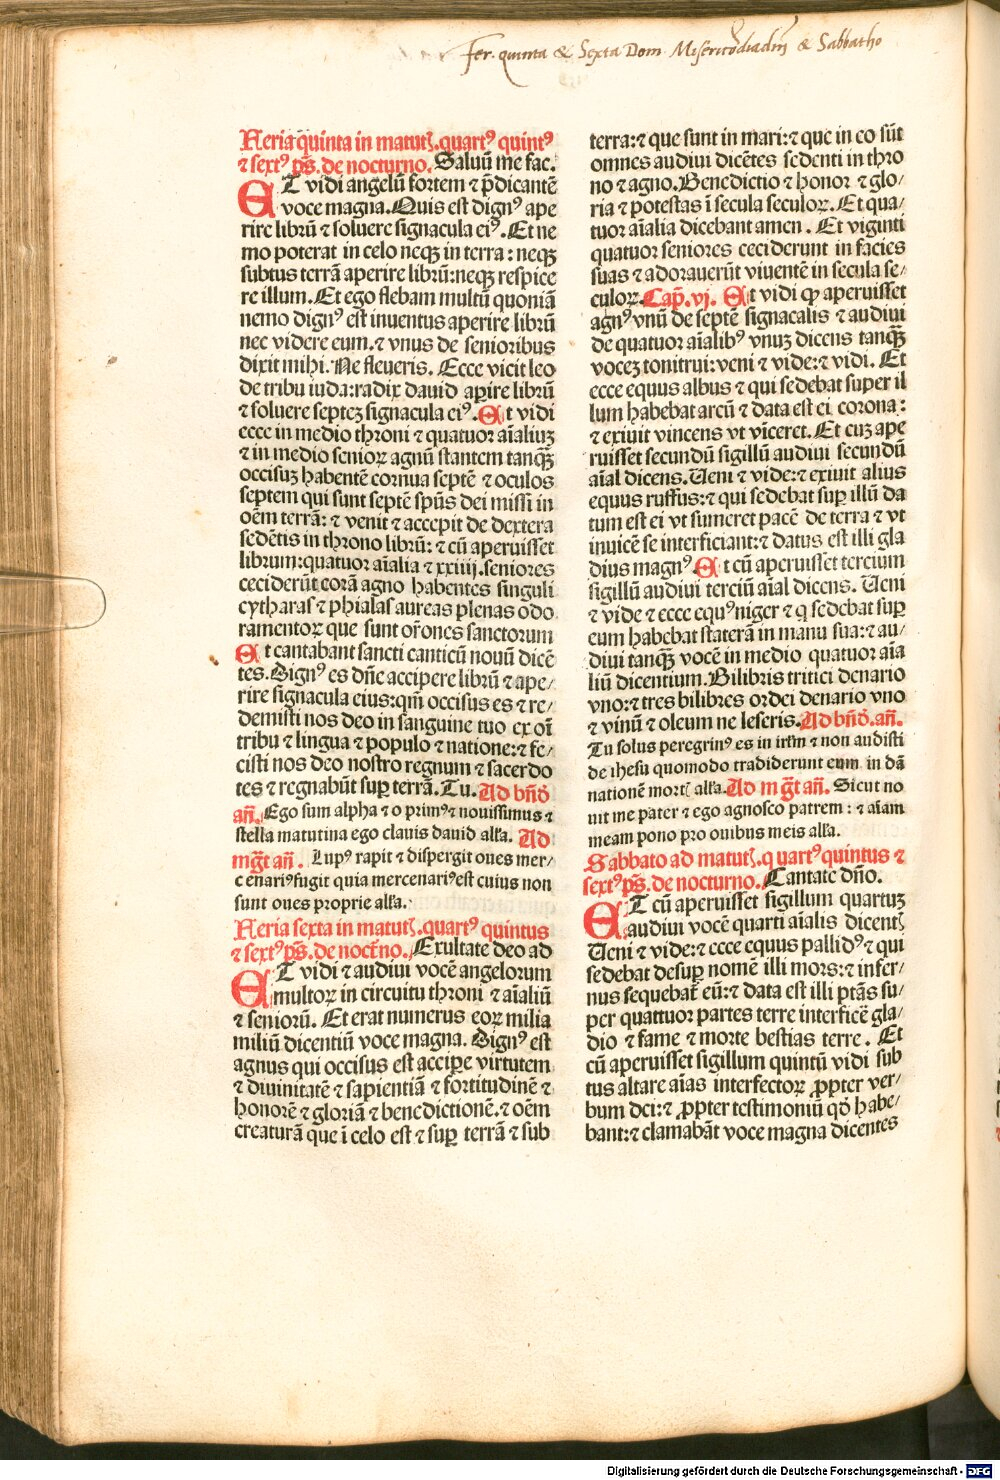 Fer. quinta & Sexta Dom Misericordiadni & Sabbatho
Feria quinta in matutꝭ. quartꝰ quintꝰ
⁊ sextꝰ p̄s. de nocturno. Saluū me fac.
ET vidi angelū fortem ⁊ p̄dicantē
voce magna. Quis est dignꝰ ape
rire librū ⁊ soluere signacula eiꝰ. Et ne
mo poterat in celo neqꝫ in terra: neqꝫ
subtus terrā aperire librū: neqꝫ respice
re illum. Et ego flebam multū quoniā
nemo dignꝰ est inuentus aperire librū
nec videre eum. ⁊ vnus de senioribus
dixit mihi. Ne fleueris. Ecce vicit leo
de tribu iuda: radix dauid apꝑire librū
⁊ soluere septeꝫ signacula eiꝰ. Et vidi
ecce in medio throni ⁊ quatuor aīaliuꝫ
⁊ in medio senioꝝ agnū stantem tanqꝫ
occisuꝫ habentē cornua septē ⁊ oculos
septem qui sunt septē spūs dei missi in
oēm terrā: ⁊ venit ⁊ accepit de dextera
sedētis in throno librū: ⁊ cū aperuisset
librum: quatuor aīalia ⁊ xxiiij. seniores
ceciderūt corā agno habentes singuli
cytharas ⁊ phialas aureas plenas odo
ramentoꝝ que sunt orōnes sanctorum
Et cantabant sancti canticū nouū dicē
tes. Dignꝰ es dn̄e accipere librū ⁊ ape/
rire signacula eius: qm̄ occisus es ⁊ re/
demisti nos deo in sanguine tuo ex oī
tribu ⁊ lingua ⁊ populo ⁊ natione: ⁊ fe/
cisti nos deo nostro regnum ⁊ sacerdo
tes ⁊ regnabūt sup terrā. Tu. Ad bn̄d
an̄. Ego sum alpha ⁊ o primꝰ ⁊ nouissimus ⁊
stella matutina ego clauis dauid alla. Ad
mgt̄ an̄. Lupꝰ rapit ⁊ dispergit oues mer/
cenariꝰ fugit quia mercenariꝰ est cuius non
sunt oues proprie alla.
Feria sexta in matutꝭ. quartꝰ quintus
⁊ sextꝰ p̄s. de noct̄no. Exultate deo ad
ET vidi ⁊ audiui vocē angelorum
multoꝝ in circuitu throni ⁊ aīaliū
⁊ seniorū. Et erat numerus eoꝝ milia
miliū dicentiū voce magna. Dignꝰ est
agnus qui occisus est accipe virtutem
⁊ diuinitatē ⁊ sapientiā ⁊ fortitudinē ⁊
honorē ⁊ gloriā ⁊ benedictionē. ⁊ oēm
creaturā que ī celo est ⁊ sup terrā ⁊ sub
terra: ⁊ que sunt in mari: ⁊ que in eo sūt
omnes audiui dicētes sedenti in thro
no ⁊ agno. Benedictio ⁊ honor ⁊ glo/
ria ⁊ potestas ī secula seculoꝝ. Et qua/
tuor aīalia dicebant amen. Et viginti
quatuor seniores ceciderunt in facies
suas ⁊ adorauerūt viuentē in secula se/
culoꝝ. Cap̄. vj. Et vidi ꝙ aperuisset
agnꝰ vnū de septē signacalis ⁊ audiui
de quatuor aīalibꝰ vnuꝫ dicens tanqꝫ
voceꝫ tonitrui: veni ⁊ vide: ⁊ vidi. Et
ecce equus albus ⁊ qui sedebat super il
lum habebat arcū ⁊ data est ei corona:
⁊ exiuit vincens vt vīceret. Et cuꝫ ape
ruisset secundū sigillū audiui secundū
aīal dicens. Ueni ⁊ vide: ⁊ exiuit alius
equus ruffus: ⁊ qui sedebat sup illū da
tum est ei vt sumeret pacē de terra ⁊ vt
inuicē se interficiant: ⁊ datus est illi gla
dius magnꝰ. Et cū aperuisset tercium
sigillū audiui terciū aīal dicens. Ueni
⁊ vide ⁊ ecce equꝰ niger ⁊ q sedebat sup
eum habebat staterā in manu sua: ⁊ au/
diui tanqꝫ vocē in medio quatuor aīa
liū dicentium. Bilibris tritici denario
vno: ⁊ tres bilibres ordei denario vno
⁊ vinū ⁊ oleum ne leseris. Ad bn̄d. an̄.
Tu solus peregrinꝰ es in irlm ⁊ non audisti
de ihesu quomodo tradiderunt eum in dā
nationē mortꝭ alla. Ad mgt̄ an̄. Sicut no
uit me pater ⁊ ego agnosco patrem: ⁊ aīam
meam pono pro ouibus meis alla.
Sabbato ad matutꝭ. quartꝰ quintus ⁊
sextꝰ p̄s. de nocturno. Cantate dn̄o.
ET cū aperuisset sigillum quartuꝫ
audiui vocē quarti aīalis dicentꝭ
Ueni ⁊ vide: ⁊ ecce equus pallidꝰ ⁊ qui
sedebat desup nomē illi mors: ⁊ infer/
nus sequebat̄ eū: ⁊ data est illi ptās su/
per quattuor partes terre interficē gla/
dio ⁊ fame ⁊ morte ⁊ bestias terre. Et
cū aperuisset sigillum quintū vidi sub
tus altare aīas interfectoꝝ ꝓpter ver/
bum dei: ⁊ ꝓpter testimoniū qd̄ habe/
bant: ⁊ clamabāt voce magna dicentes
Digitalisierung gefördert durch die Deutsche Forschungsgemeinschaft - DFG